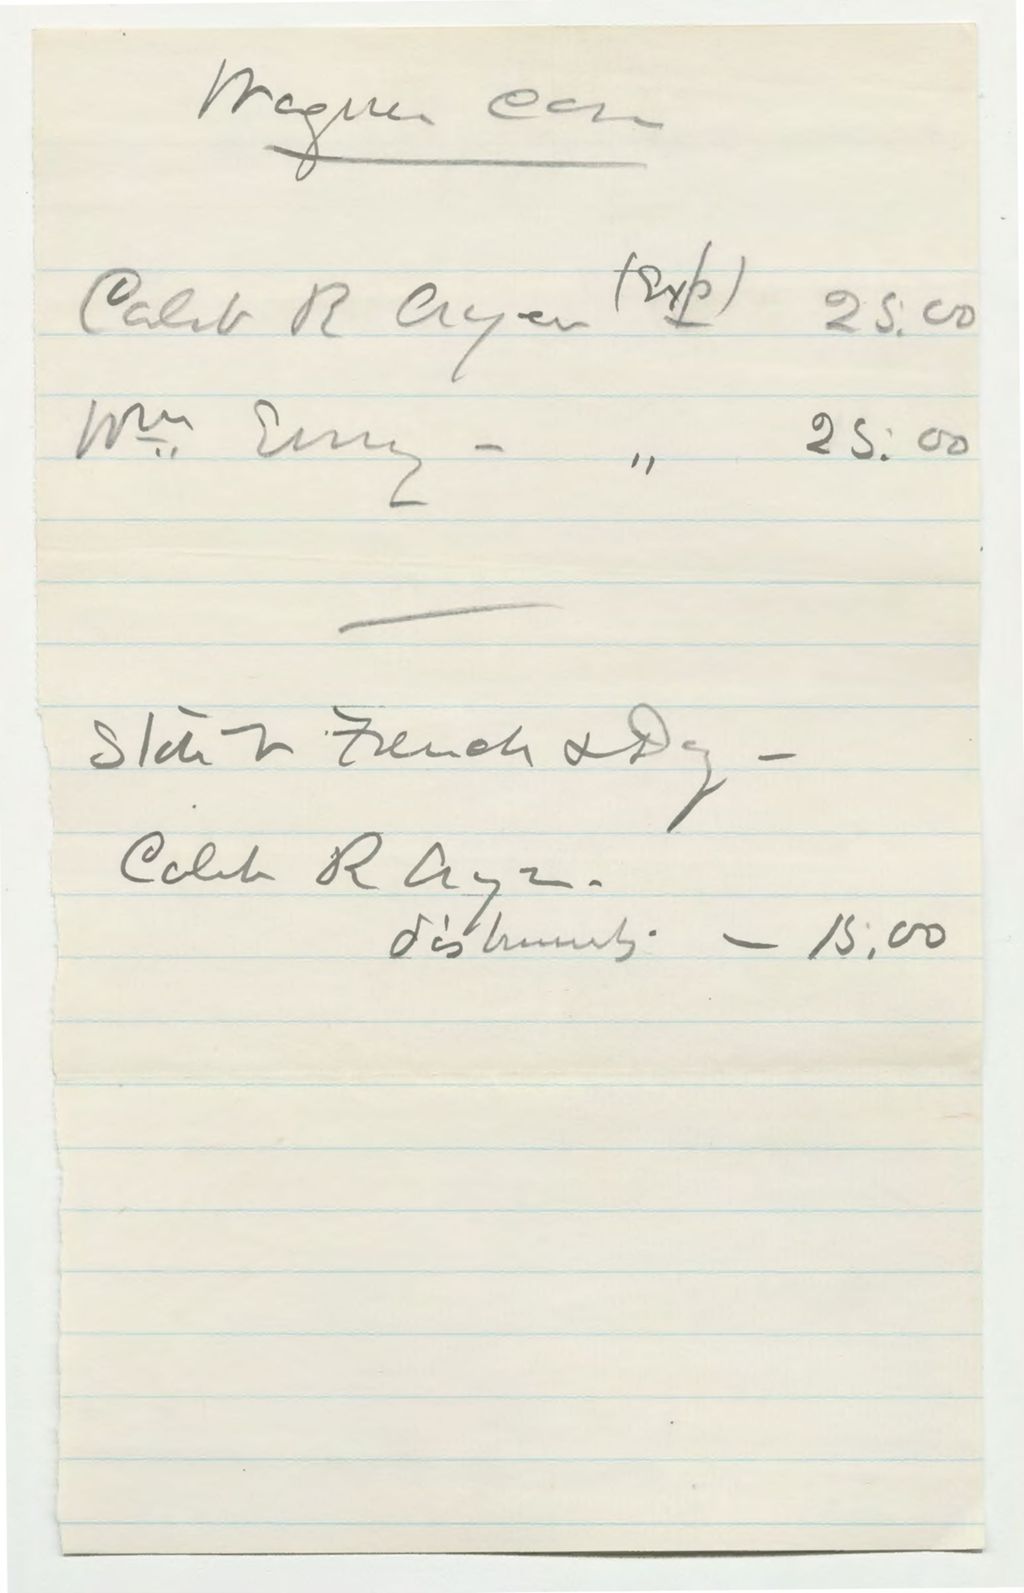 Wagner Case
Caleb R Ayer (Exp) 25.00
Wm Emery - " 25.00
State v French & Day -
Caleb R Ayer -
disbursements - 15.00